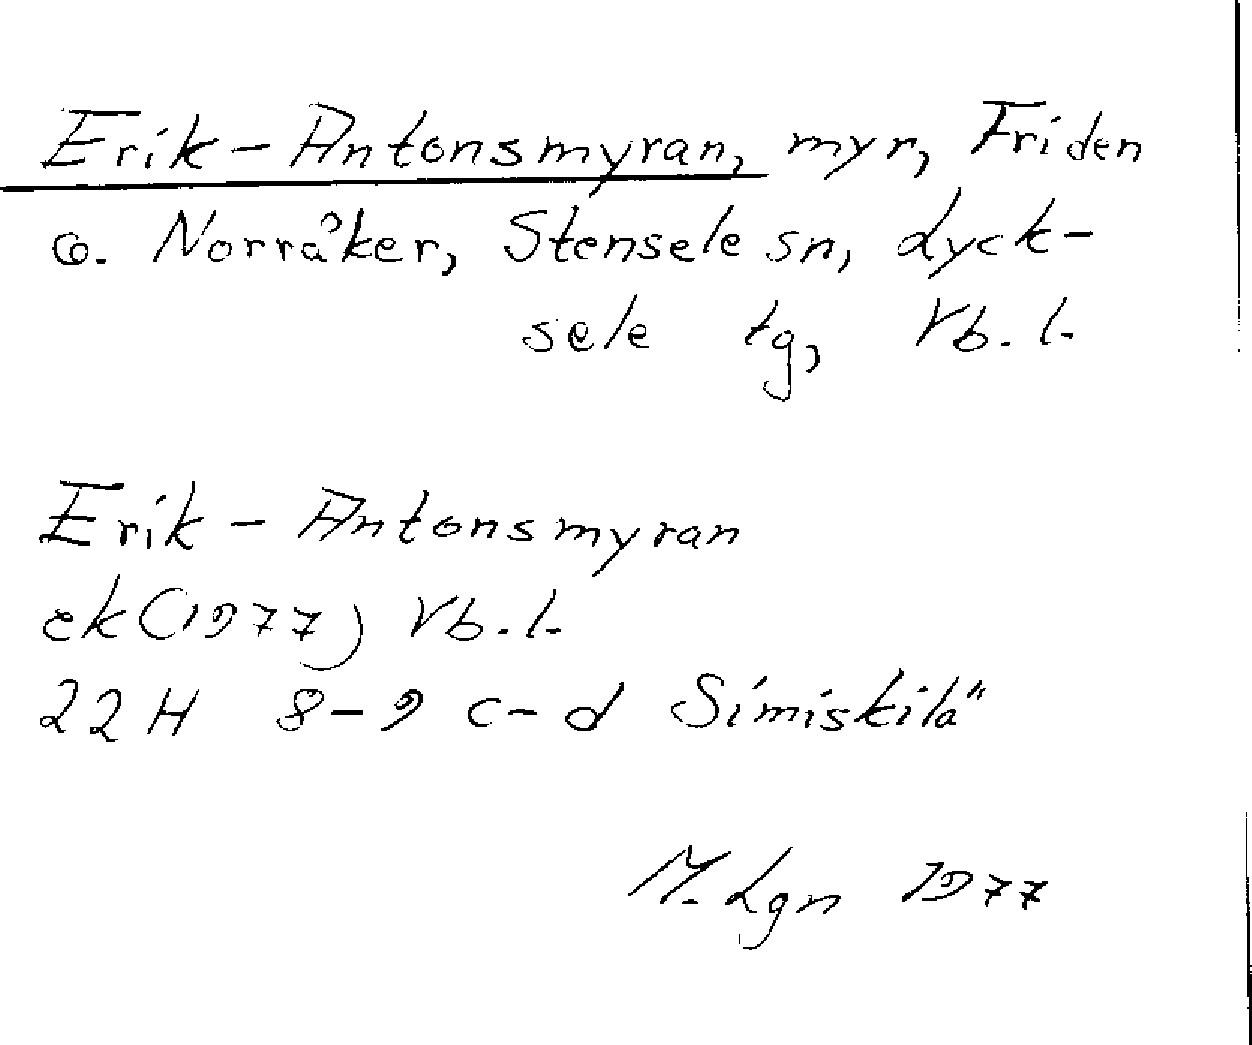 Erik-Antonsmyran, myr, Friden
o. Norråker, Stensele sn, Lyck-
sele tg, Vb. l.
Erik-Antonsmyran
ek (1977) Vb. l.
22H 8-9 c-d Simiskilä
M. Lgn 1977